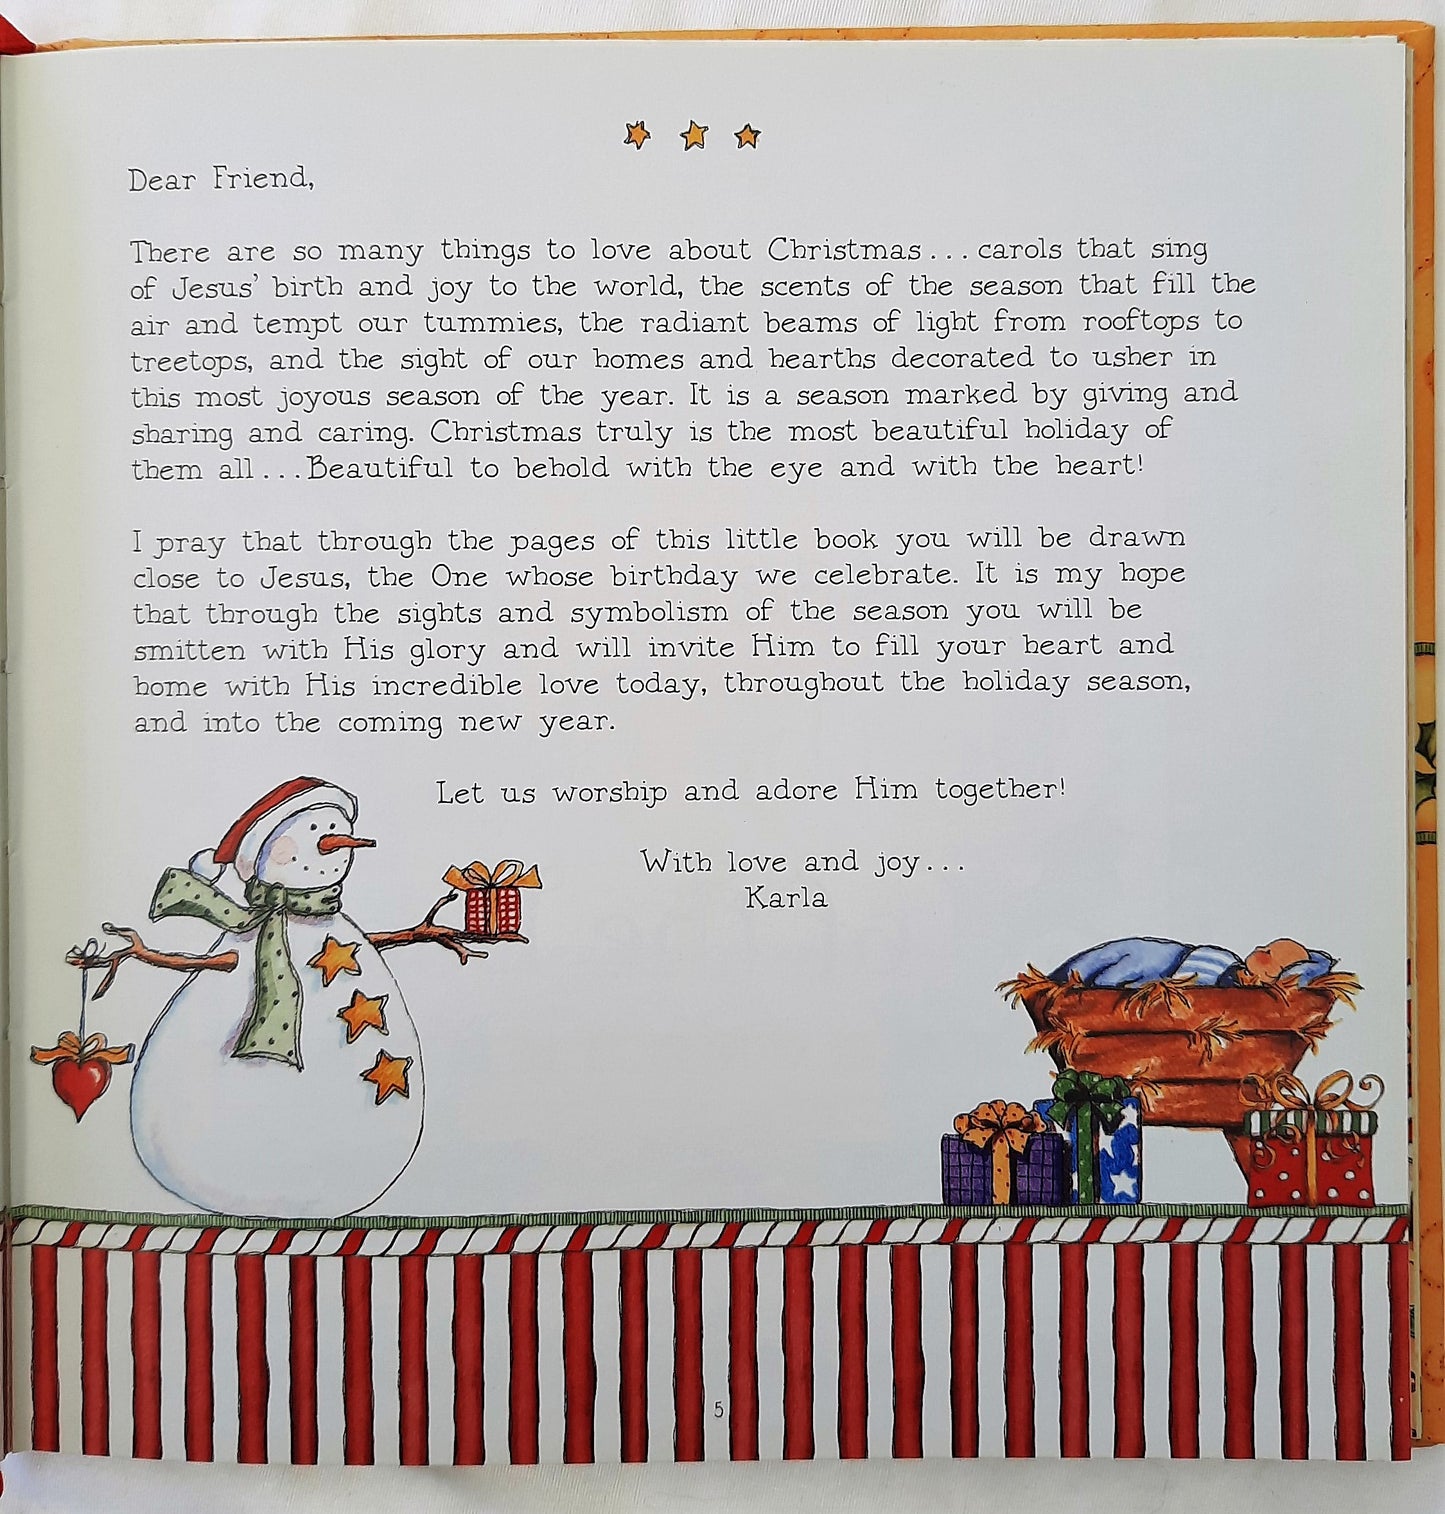 Dear Friend,
There are so many things to love about Christmas... carols that sing
of Jesus' birth and joy to the world, the scents of the season that fill the
air and tempt our tummies, the radiant beams of light from rooftops to
treetops, and the sight of our homes and hearths decorated to usher in
this most joyous season of the year. It is a season marked by giving and
sharing and caring. Christmas truly is the most beautiful holiday of
them all...Beautiful to behold with the eye and with the heart!
I pray that through the pages of this little book you will be drawn
close to Jesus, the One whose birthday we celebrate. It is my hope
that through the sights and symbolism of the season you will be
smitten with His glory and will invite Him to fill your heart and
home with His incredible love today, throughout the holiday season,
and into the coming new year.
Let us worship and adore Him together!
With love and joy...
Karla
5